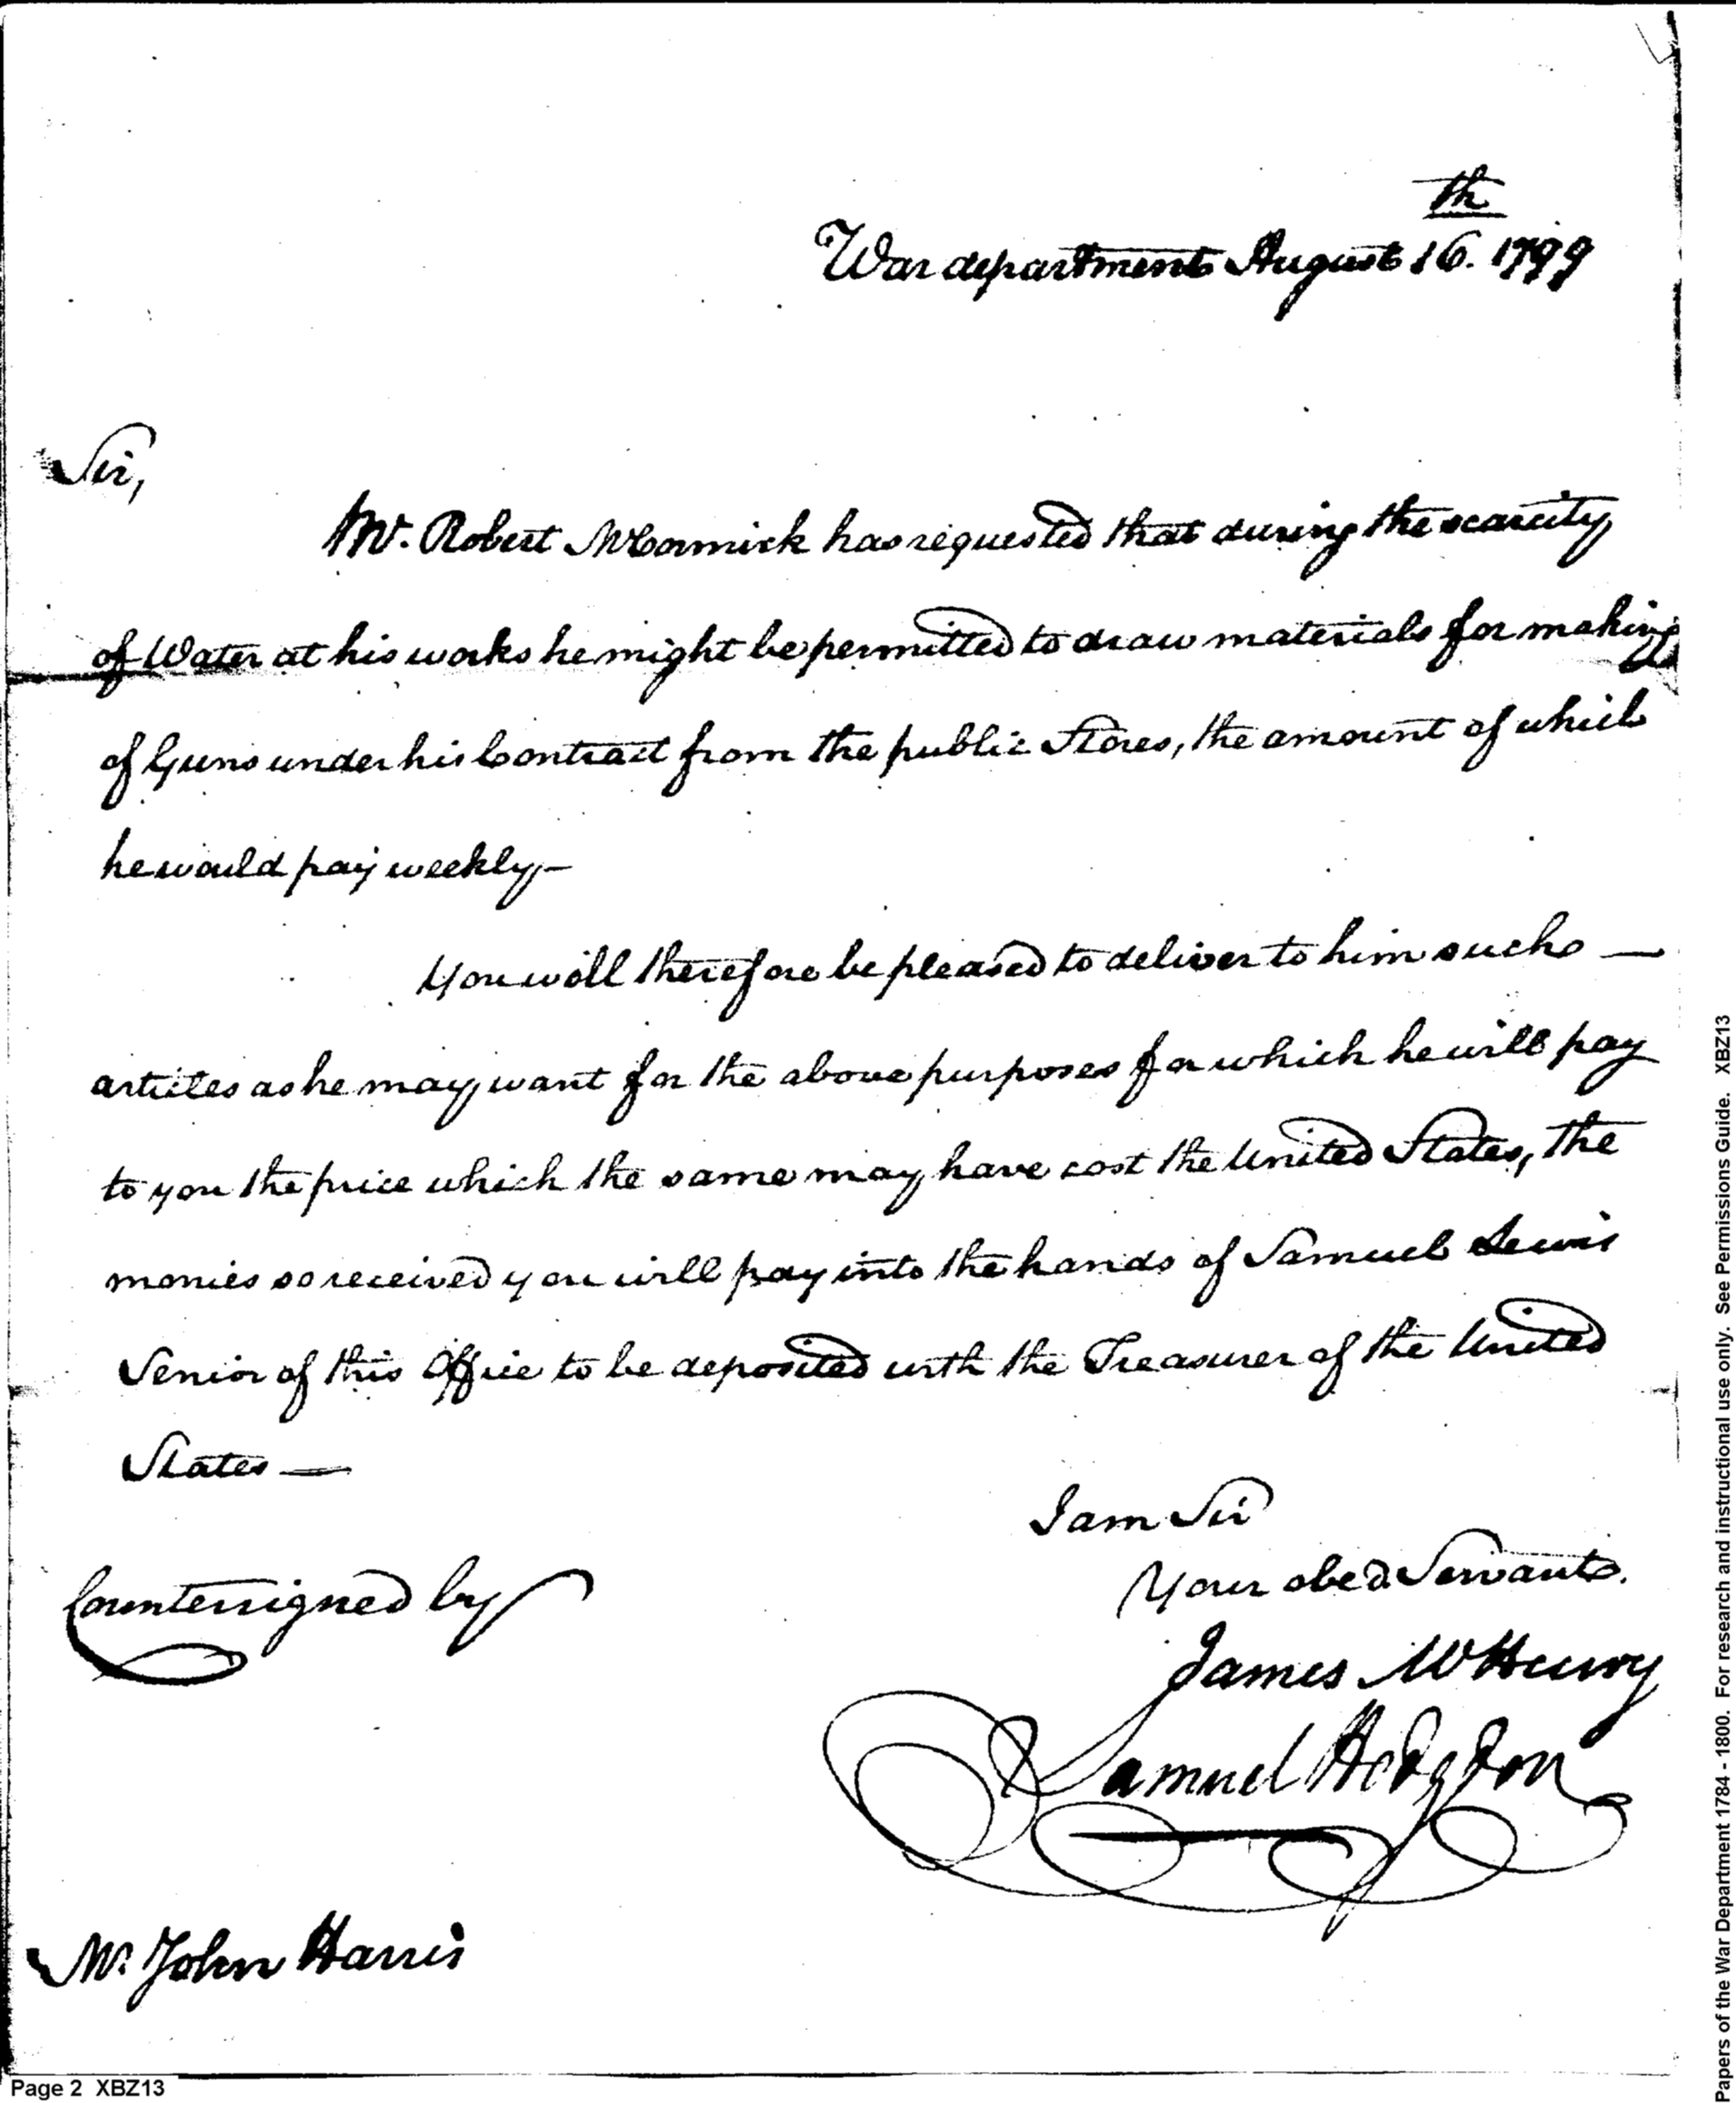 War department August 16.th 1799
Sir,
Mr. Robert McCormick has requested that during the scarcity
of Water at his works he might be permitted to draw materials for making
of Guns under his Contract from the public Stores, the amount of which
he would pay weekly—
You will therefore be pleased to deliver to him such —
articles as he may want for the above purposes for which he will pay
to you the price which the same may have cost the United States, the
monies so received you will pay into the hands of Samuel Lewis
Senior of this Office to be deposited with the Treasurer of the United
States —
I am Sir
Your obed. Servant.
James McHenry
Countersigned by
Samuel Hodgdon
Mr. John Harris
Page 2 XBZ13
Papers of the War Department 1784 - 1800. For research and instructional use only. See Permissions Guide. XBZ13